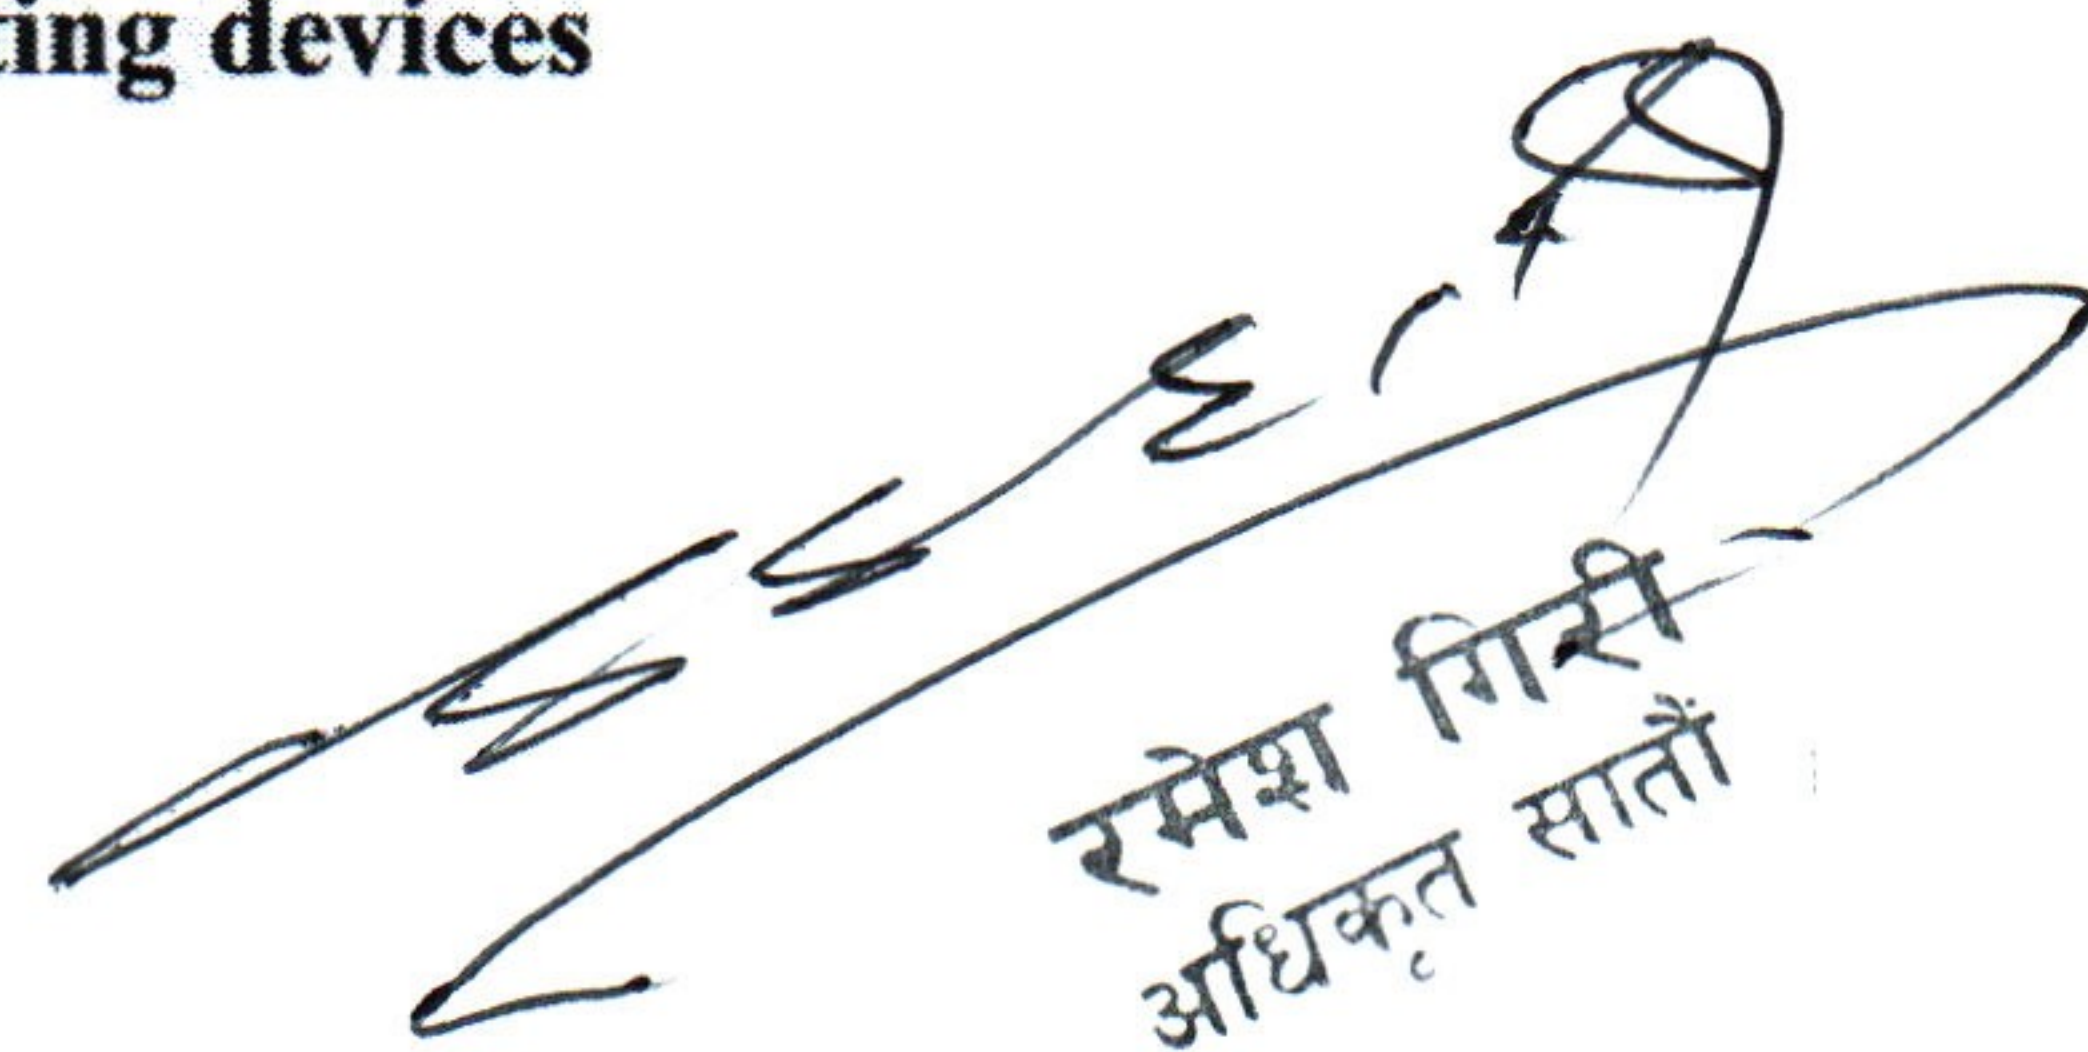 ting devices
रमेश गिरी
अधिकृत सातौं